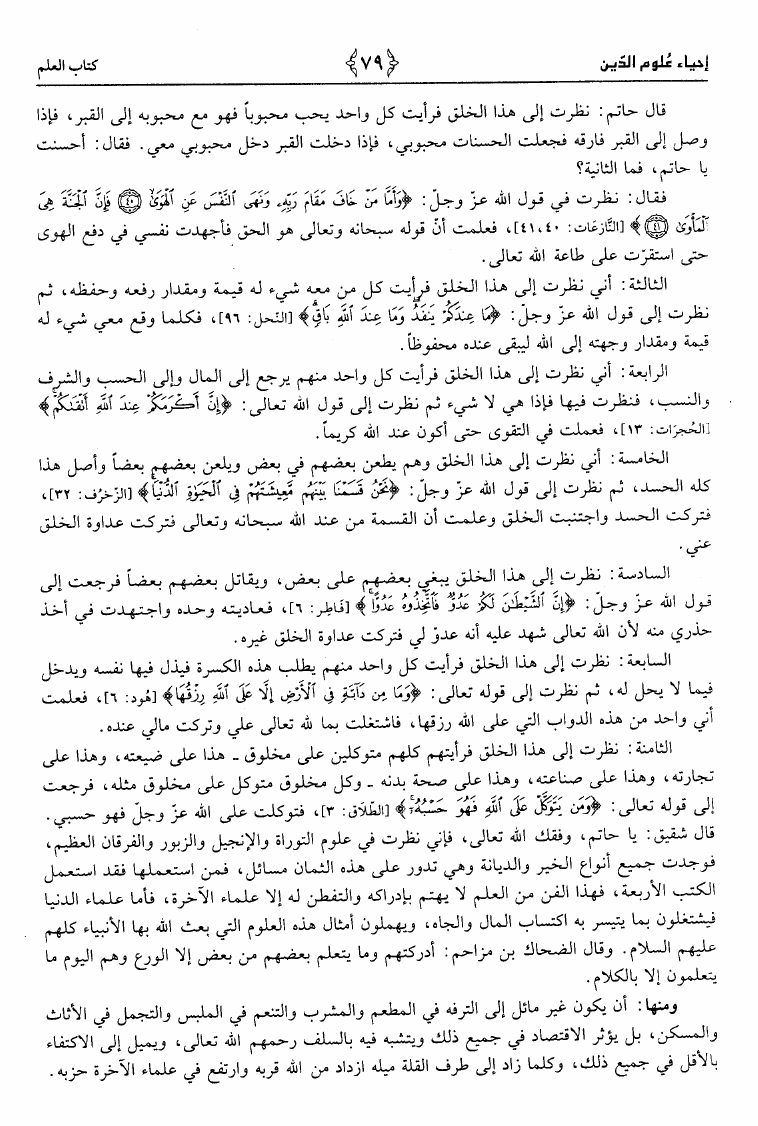 إحياء عُلوم الدّين ﴿٧٩﴾ كتاب العلم
قال حاتم: نظرت إلى هذا الخلق فرأيت كل واحد يحب محبوباً فهو مع محبوبه إلى القبر، فإذا
وصل إلى القبر فارقه فجعلت الحسنات محبوبي، فإذا دخلت القبر دخل محبوبي معي. فقال: أحسنت
يا حاتم، فما الثانية؟
فقال: نظرت في قول الله عزّ وجلّ: ﴿وَأَمَّا مَنْ خَافَ مَقَامَ رَبِّهِۦ وَنَهَى ٱلنَّفْسَ عَنِ ٱلْهَوَىٰ ۝٤٠ فَإِنَّ ٱلْجَنَّةَ هِىَ
ٱلْمَأْوَىٰ ۝٤١﴾ [النَّازعَات: ٤١،٤٠]، فعلمت أنّ قوله سبحانه وتعالى هو الحق فأجهدت نفسي في دفع الهوى
حتى استقرّت على طاعة الله تعالى.
الثالثة: أني نظرت إلى هذا الخلق فرأيت كل من معه شيء له قيمة ومقدار رفعه وحفظه، ثم
نظرت إلى قول الله عزّ وجلّ: ﴿مَا عِندَكُمْ يَنفَدُ وَمَا عِندَ ٱللَّهِ بَاقٍ﴾ [النّحل: ٩٦]، فكلما وقع معي شيء له
قيمة ومقدار وجهته إلى الله ليبقى عنده محفوظاً.
الرابعة: أني نظرت إلى هذا الخلق فرأيت كل واحد منهم يرجع إلى المال وإلى الحسب والشرف
والنسب، فنظرت فيها فإذا هي لا شيء ثم نظرت إلى قول الله تعالى: ﴿إِنَّ أَكْرَمَكُمْ عِندَ ٱللَّهِ أَتْقَىٰكُمْ﴾
[الحُجرَات: ١٣]، فعملت في التقوى حتى أكون عند الله كريماً.
الخامسة: أني نظرت إلى هذا الخلق وهم يطعن بعضهم في بعض ويلعن بعضهم بعضاً وأصل هذا
كله الحسد، ثم نظرت إلى قول الله عزّ وجلّ: ﴿نَحْنُ قَسَمْنَا بَيْنَهُم مَّعِيشَتَهُمْ فِى ٱلْحَيَوٰةِ ٱلدُّنْيَا﴾ [الزّخرُف: ٣٢]،
فتركت الحسد واجتنبت الخلق وعلمت أن القسمة من عند الله سبحانه وتعالى فتركت عداوة الخلق
عني.
السادسة: نظرت إلى هذا الخلق يبغي بعضهم على بعض، ويقاتل بعضهم بعضاً فرجعت إلى
قول الله عزّ وجلّ: ﴿إِنَّ ٱلشَّيْطَٰنَ لَكُمْ عَدُوٌّ فَٱتَّخِذُوهُ عَدُوًّا﴾ [فَاطِر: ٦]، فعاديته وحده واجتهدت في أخذ
حذري منه لأن الله تعالى شهد عليه أنه عدوّ لي فتركت عداوة الخلق غيره.
السابعة: نظرت إلى هذا الخلق فرأيت كل واحد منهم يطلب هذه الكسرة فيذل فيها نفسه ويدخل
فيما لا يحل له، ثم نظرت إلى قوله تعالى: ﴿وَمَا مِن دَآبَّةٍ فِى ٱلْأَرْضِ إِلَّا عَلَى ٱللَّهِ رِزْقُهَا﴾ [هُود: ٦]، فعلمت
أني واحد من هذه الدواب التي على الله رزقها، فاشتغلت بما لله تعالى علي وتركت مالي عنده.
الثامنة: نظرت إلى هذا الخلق فرأيتهم كلهم متوكلين على مخلوق ـ هذا على ضيعته، وهذا على
تجارته، وهذا على صناعته، وهذا على صحة بدنه ـ وكل مخلوق متوكل على مخلوق مثله، فرجعت
إلى قوله تعالى: ﴿وَمَن يَتَوَكَّلْ عَلَى ٱللَّهِ فَهُوَ حَسْبُهُۥٓ﴾ [الطّلَاق: ٣]، فتوكلت على الله عزّ وجلّ فهو حسبي.
قال شقيق: يا حاتم، وفقك الله تعالى، فإني نظرت في علوم التوراة والإنجيل والزبور والفرقان العظيم،
فوجدت جميع أنواع الخير والديانة وهي تدور على هذه الثمان مسائل، فمن استعملها فقد استعمل
الكتب الأربعة، فهذا الفن من العلم لا يهتم بإدراكه والتفطن له إلا علماء الآخرة، فأما علماء الدنيا
فيشتغلون بما يتيسر به اكتساب المال والجاه، ويهملون أمثال هذه العلوم التي بعث الله بها الأنبياء كلهم
عليهم السلام. وقال الضحاك بن مزاحم: أدركتهم وما يتعلم بعضهم من بعض إلا الورع وهم اليوم ما
يتعلمون إلا بالكلام.
ومنها: أن يكون غير مائل إلى الترفه في المطعم والمشرب والتنعم في الملبس والتجمل في الأثاث
والمسكن، بل يؤثر الاقتصاد في جميع ذلك ويتشبه فيه بالسلف رحمهم الله تعالى، ويميل إلى الاكتفاء
بالأقل في جميع ذلك، وكلما زاد إلى طرف القلة ميله ازداد من الله قربه وارتفع في علماء الآخرة حزبه.